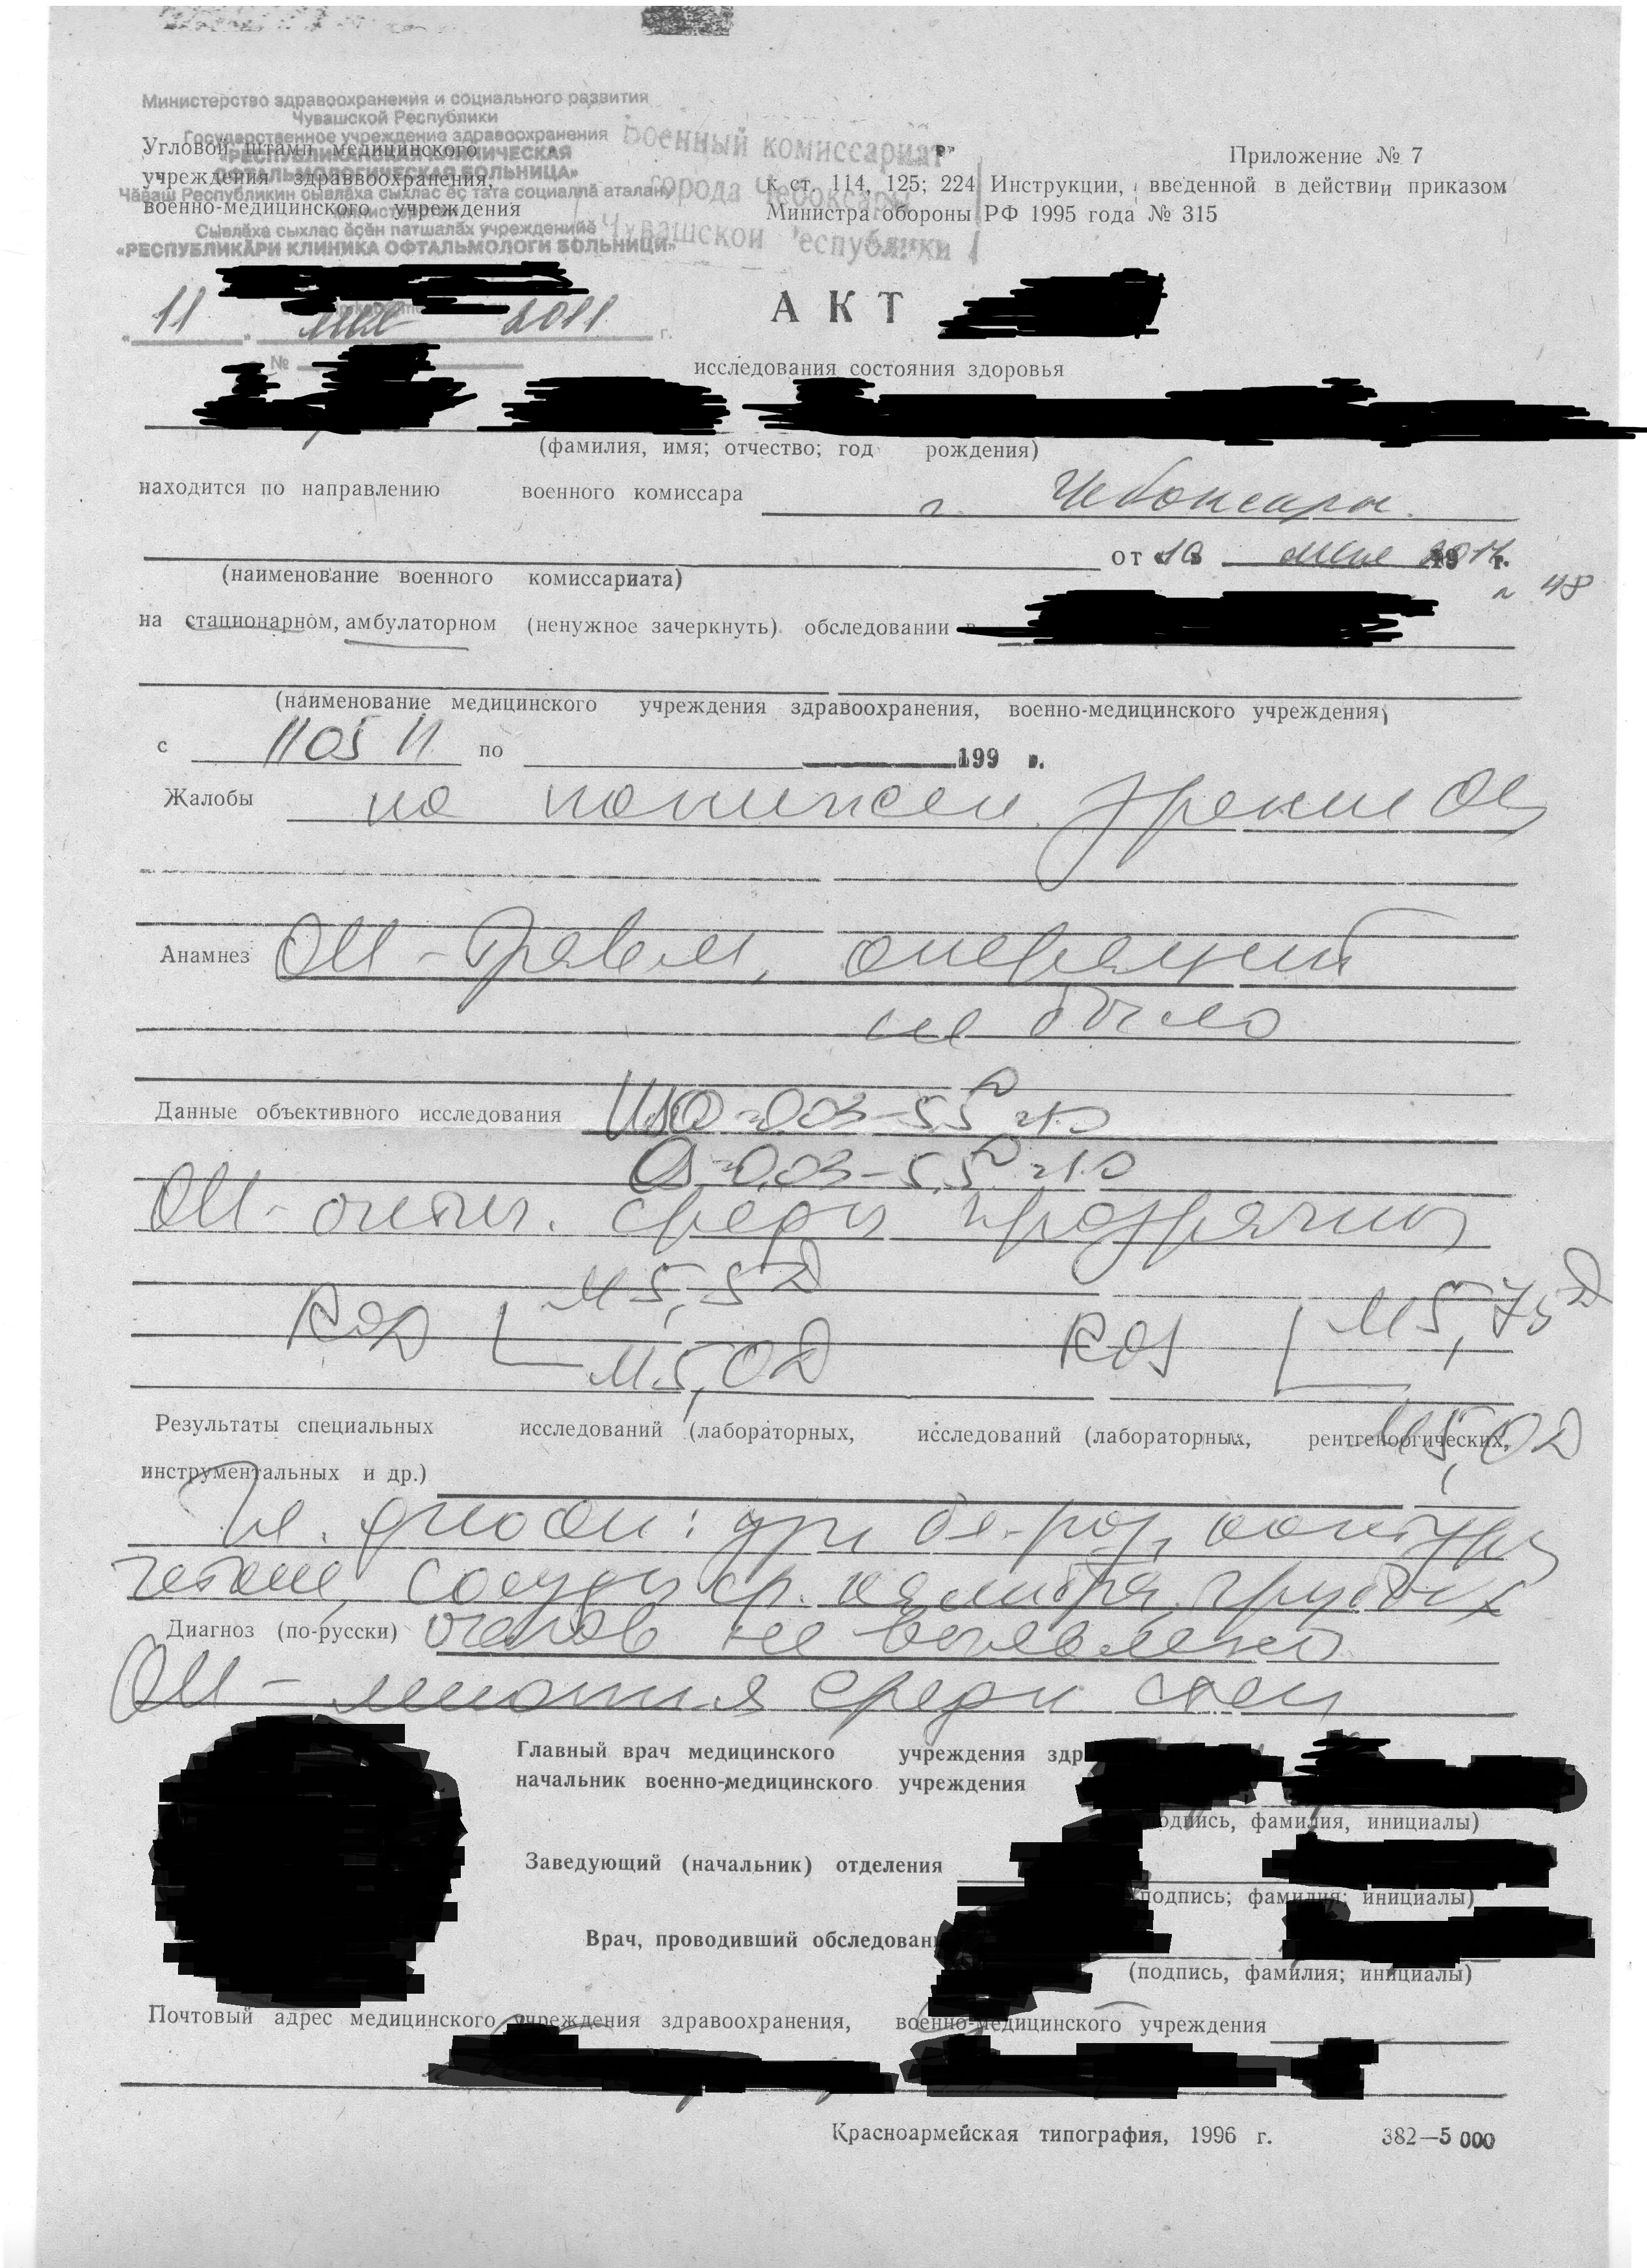 Министерство здравоохранения и социального развития
Чувашской Республики
Государственное учреждение здравоохранения
«РЕСПУБЛИКАНСКАЯ КЛИНИЧЕСКАЯ
ОФТАЛЬМОЛОГИЧЕСКАЯ БОЛЬНИЦА»
Чӑваш Республикин сывлӑха сыхлас ӗҫ тата социаллӑ аталану
Сывлӑха сыхлас ӗҫӗн патшалӑх учрежденийӗ
«РЕСПУБЛИКӐРИ КЛИНИКА ОФТАЛЬМОЛОГИ БОЛЬНИЦИ»
Угловой штамп медицинского
учреждения здраввоохранения,
военно-медицинского учреждения
Военный комиссариат
города Чебоксары
Чувашской Республики
Приложение № 7
к ст. 114, 125; 224 Инструкции, введенной в действии приказом
Министра обороны РФ 1995 года № 315
«11» мая 2011 г.
№
АКТ
исследования состояния здоровья
(фамилия, имя; отчество; год рождения)
находится по направлению военного комиссара г. Чебоксары.
от «10» мая 2011 г.
(наименование военного комиссариата)
48
на стационарном, амбулаторном (ненужное зачеркнуть) обследовании в
(наименование медицинского учреждения здравоохранения, военно-медицинского учреждения)
с 11 05 11 по 199 г.
Жалобы на понижен. зрения
Анамнез ОИ - травм, операций
не было
Данные объективного исследования =0,03 -5,5D =1.0
=0,03 -5,5D =1.0
ОИ - оптич. среды прозрачны
ROD М 5,5D ROS М 5,75D
М 5,0D
М 5,0D
Результаты специальных исследований (лабораторных, исследований (лабораторных, рентгеноргических,
инструментальных и др.)
Гл. дно ОИ: дзн бл.-роз, контуры
четкие, сосуды ср. калибра, грубых
Диагноз (по-русски) очагов не выявлено
ОИ - миопия средн степ
Главный врач медицинского учреждения здр
начальник военно-медицинского учреждения
подпись, фамилия, инициалы)
Заведующий (начальник) отделения
(подпись; фамилия; инициалы)
Врач, проводивший обследован
(подпись, фамилия; инициалы)
Почтовый адрес медицинского учреждения здравоохранения, военно-медицинского учреждения
Красноармейская типография, 1996 г. 382—5 000